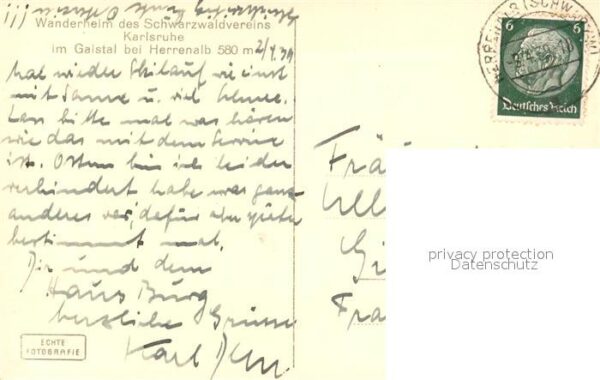 Wanderheim des Schwarzwaldvereins
Karlsruhe
im Gaistal bei Herrenalb 580 m
2/4.39
mal wieder Skilauf wie einst
mit Sonne u. viel
Lass bitte mal was hören
wie das mit dem Service
ist. Ostern bin ich leider
verhindert habe was ganz
anderes vor, dafür aber später
bestimmt mal.
Dir und dem
Haus Burg
herzliche Grüsse
Karl
ECHTE
FOTOGRAFIE
HERRENALB (SCHWARZW)
6 6
Deutsches Reich
privacy protection
Datenschutz